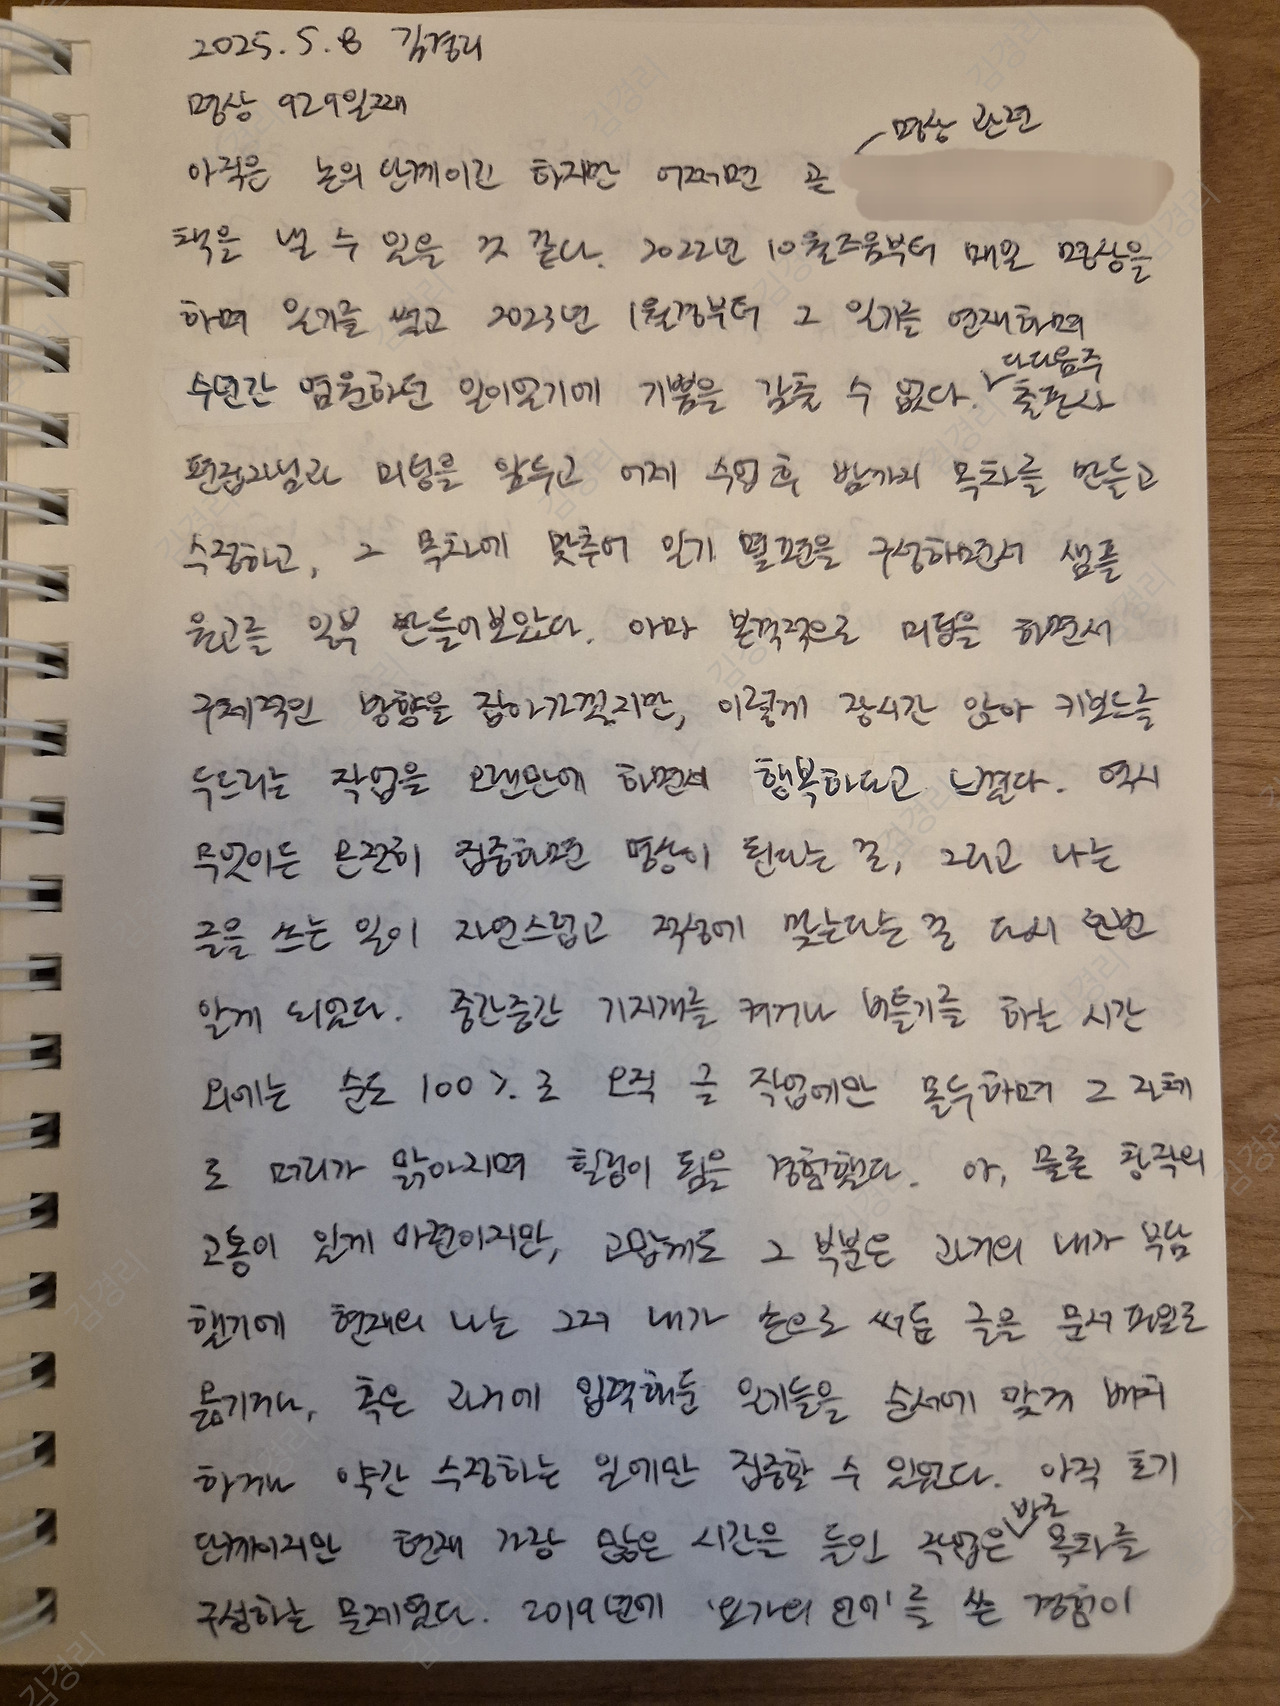 2025. 5. 8 김경리
명상 929일째
명상 관련
아직은 논의 단계이긴 하지만 어쩌면 곧
책을 낼 수 있을 것 같다. 2022년 10월즈음부터 매일 명상을
하며 일기를 썼고 2023년 1월경부터 그 일기를 연재하며
다다음주
수년간 염원하던 일이었기에 기쁨을 감출 수 없다. 출판사
편집자님과 미팅을 앞두고 어제 수업 후 밤까지 목차를 만들고
수정하고, 그 목차에 맞추어 일기 몇편을 구성하면서 샘플
원고를 일부 만들어보았다. 아마 본격적으로 미팅을 하면서
구체적인 방향을 잡아가겠지만, 이렇게 장시간 앉아 키보드를
두드리는 작업을 오랜만에 하면서 행복하다고 느꼈다. 역시
무엇이든 온전히 집중하면 명상이 된다는 걸, 그리고 나는
글을 쓰는 일이 자연스럽고 적성에 맞는다는 걸 다시 한번
알게 되었다. 중간중간 기지개를 켜거나 비틀기를 하는 시간
외에는 순도 100%로 오직 글 작업에만 몰두하며 그 자체
로 머리가 맑아지며 힐링이 됨을 경험했다. 아, 물론 창작의
고통이 있게 마련이지만, 고맙게도 그 부분은 과거의 내가 부담
했기에 현재의 나는 그저 내가 손으로 써둔 글을 문서파일로
옮기거나, 혹은 과거에 입력해둔 일기들을 순서에 맞게 배치
하거나 약간 수정하는 일에만 집중할 수 있었다. 아직 초기
바로
단계이지만 현재 가장 많은 시간을 들인 작업은 목차를
구성하는 문제였다. 2019년에 '요가의 언어'를 쓴 경험이
김경리